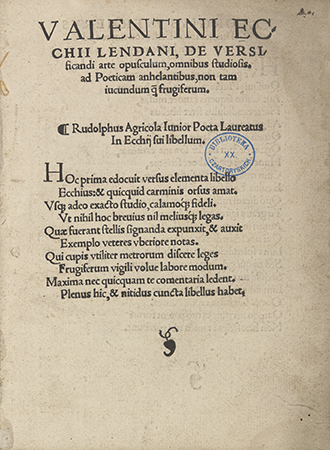 VALENTINI EC-
CHII LENDANI, DE VERSI
ficandi arte opusculum, omnibus studiosis.
ad Poeticam anhelantibus, non tam
iucundum q̃ frugiferum.
¶ Rudolphus Agricola Iunior Poeta Laureatus
In Ecchij sui libellum.
BIBLIOTEKA
XX.
CZARTORYSKICH
HOc prima edocuit versus elementa libello
Ecchius: & quicquid carminis orsus amat.
Vsq; adeo exacto studio, calamoq; fideli.
Vt nihil hoc breuius nil meliusq; legas.
Quæ fuerant stellis signanda expunxit, & auxit
Exemplo veteres vberiore notas.
Qui cupis vtiliter metrorum discere leges
Frugiferum vigili volue labore modum.
Maxima nec quicquam te comentaria ledent.
Plenus hic, & nitidus cuncta libellus habet.